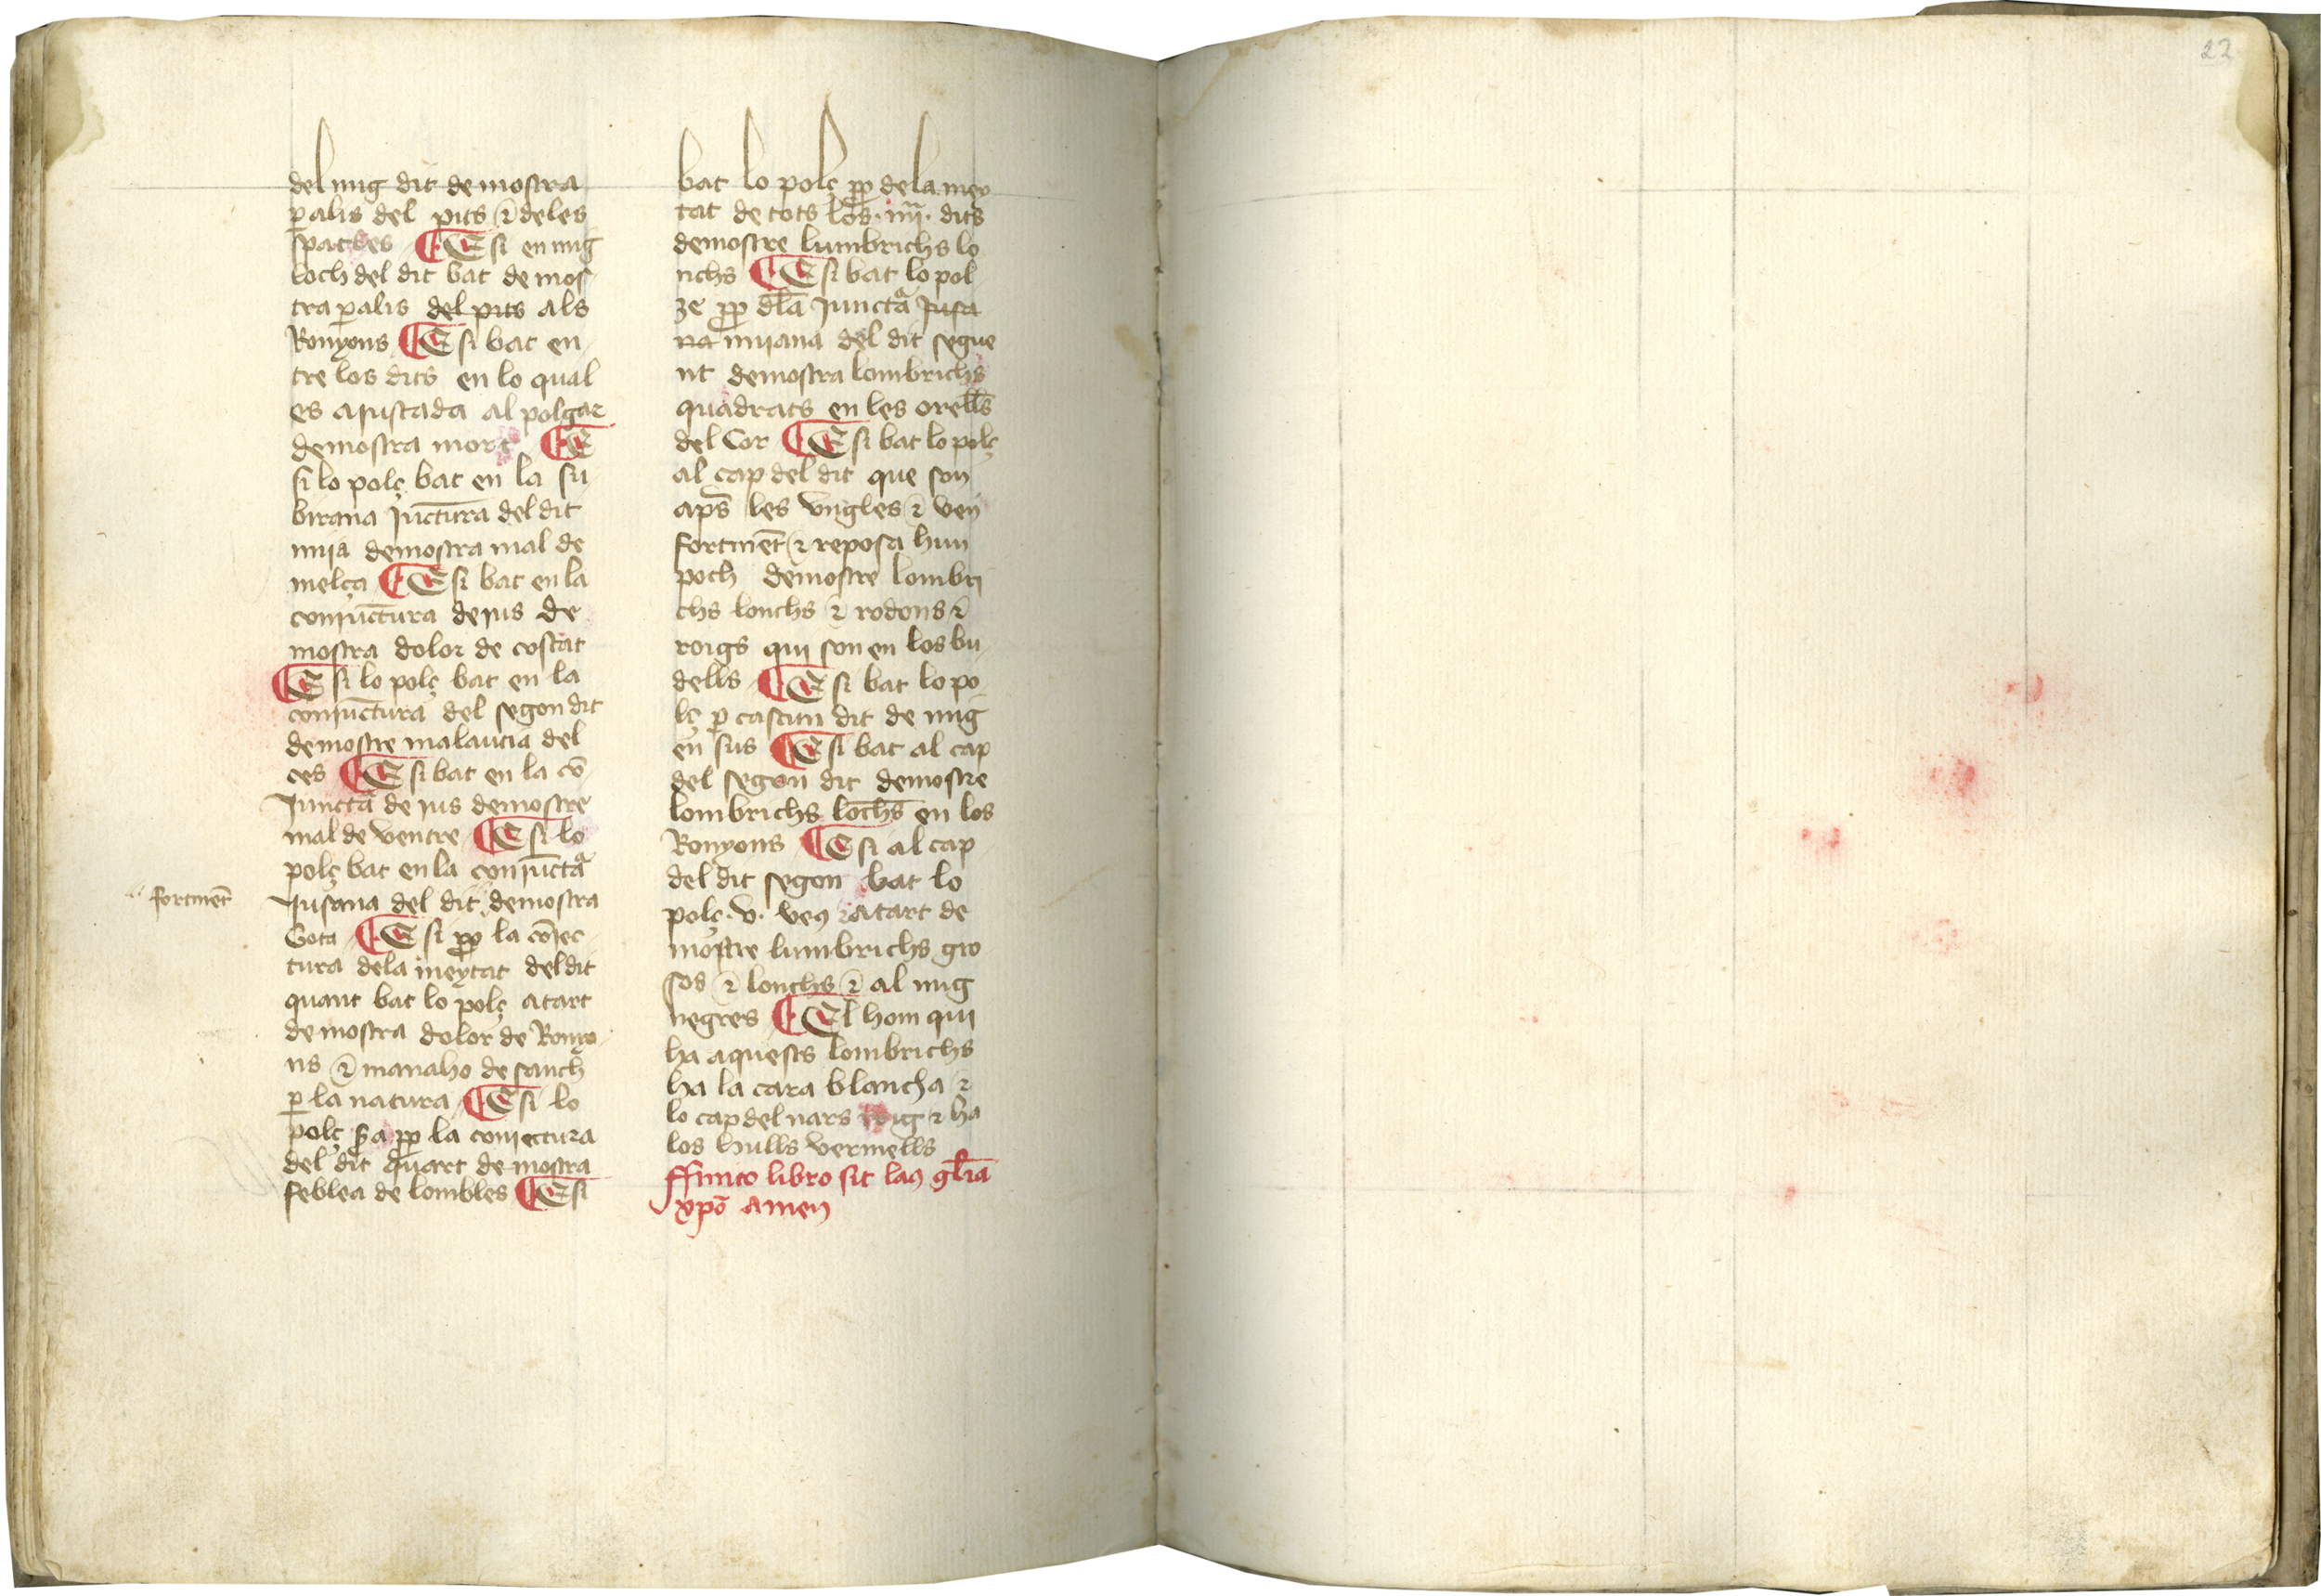 del mig dit demostra
ꝑalis del pits ⁊ deles
spatles ¶ E si en mig
loch del dit bat demos
tra ꝑalis del pits als
Ronyons ¶ E si bat en
tre los dits en lo qual
es aiustada al polgar
demostra mort ¶ E
si lo polç bat en la su
birana Iūctura del dit
mija demostra mal de
melça ¶ E si bat en la
coniūctura deius de
mostra dolor de costat
¶ E si lo polç bat en la
coniūctura del segon dit
demostre malautia del
ces ¶ E si bat en la cō
Iunctᵃ de ius demostre
mal de ventre ¶ E si lo
polç bat en la coniūctᵃ
fortmēt
Iusana del dit demostra
Gota ¶ E si ꝓp la cōiec
tura dela meytat del dit
quant bat lo polç atart
demostra dolor de Ronyo
ns ⁊ manaho de sanch
ꝑ la natura ¶ E si lo
polç ꝓp la coniectura
del dit quart demostra
feblea de lombles ¶ E si
bat lo polç ꝓp dela mey
tat de tots los .iiii. dits
demostre lumbrichs lo
nchs ¶ E si bat lo pol
ze ꝓp dla Iunctᵃ Iusa
na mijana del dit segue
nt demostra lombrichs
quadrats en les orells
del Cor ¶ E si bat lo polç
al cap del dit que son
aps les vngles ⁊ ven
fortmēt ⁊ reposa hun
poch demostre lombri
chs lonchs ⁊ rodons ⁊
roigs qui son en los bu
dells ¶ E si bat lo po
lç ꝑ cascun dit de mig
en sus ¶ E si bat al cap
del segon dit demostre
lombrichs lōchs en los
Ronyons ¶ E si al cap
del dit segon bat lo
polç .v. veꝯ ⁊ atart de
mostre lumbrichs gro
sos ⁊ lonchs ⁊ al mig
negres ¶ El hom qui
ha aquests lombrichs
ha la cara blancha ⁊
lo cap del nars roig ⁊ ha
los hulls vermells
ffinito libro sit laꝯ glīa
xp̄o amen
22